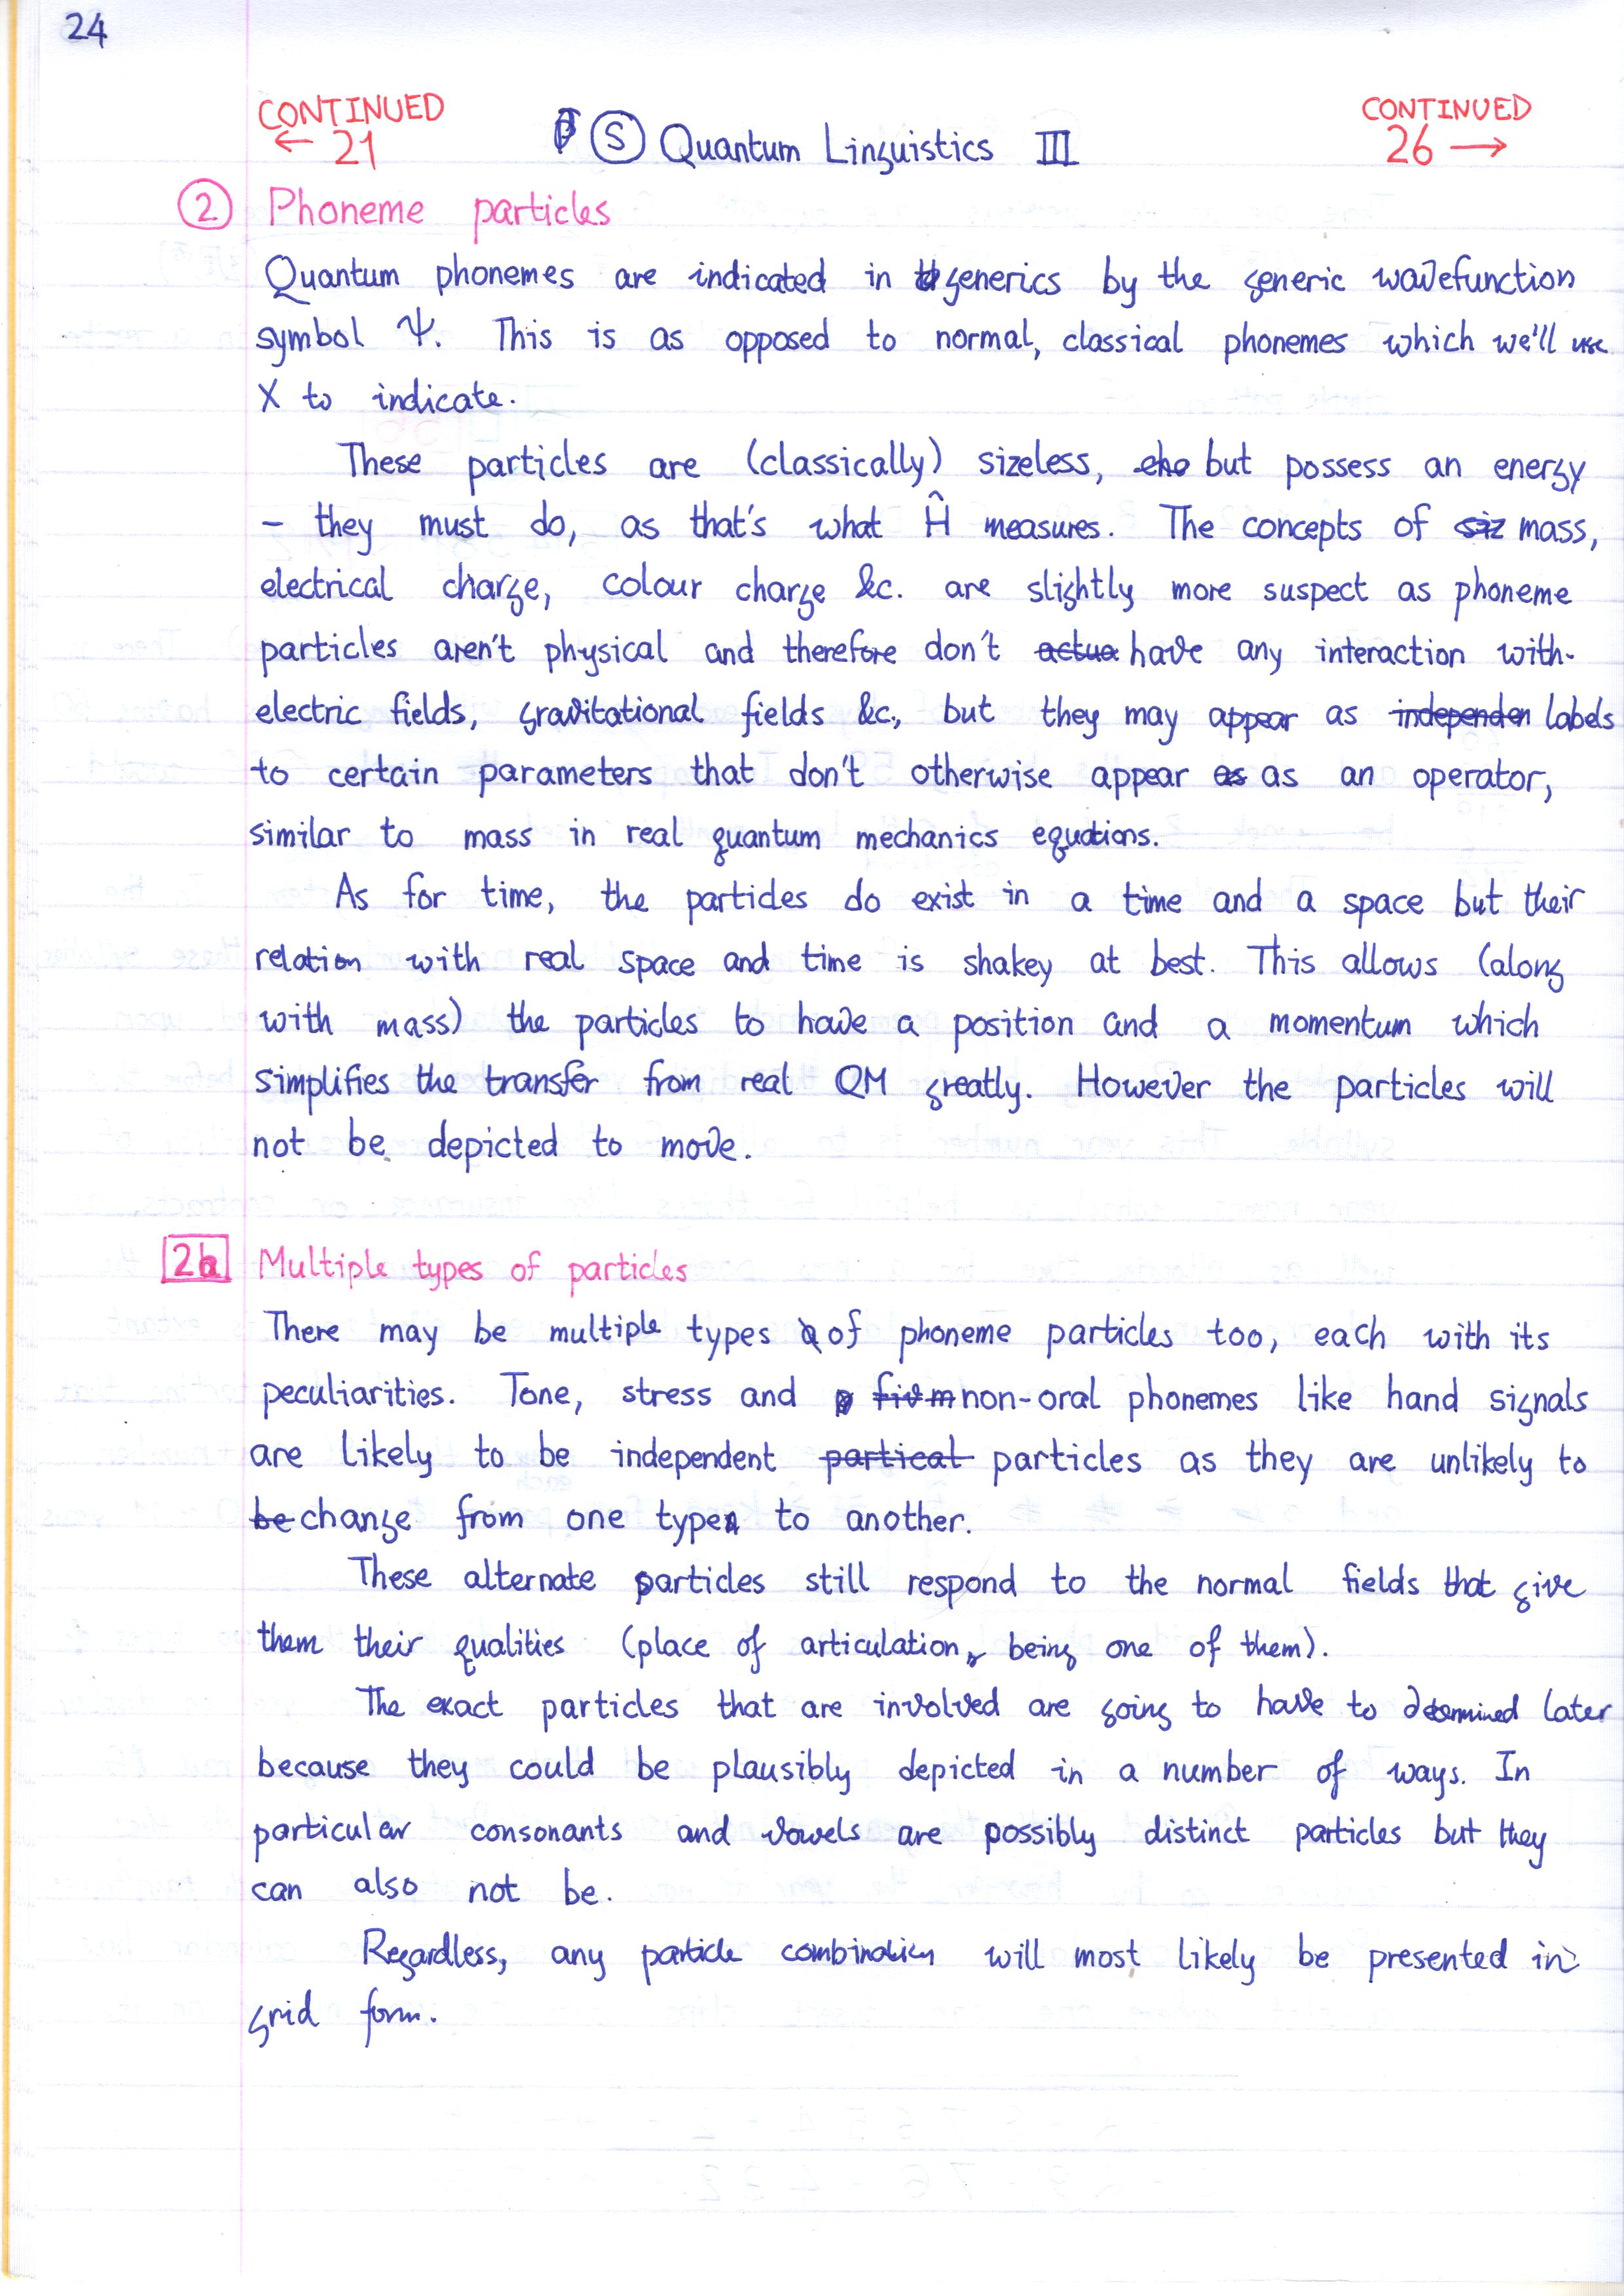 24
CONTINUED
← 21
Ⓢ Quantum Linguistics III
CONTINUED
26 →
② Phoneme particles
Quantum phonemes are indicated in generics by the generic wavefunction
symbol Ψ. This is as opposed to normal, classical phonemes which we'll use
X to indicate.
These particles are (classically) sizeless, but possess an energy
– they must do, as that's what Ĥ measures. The concepts of siz mass,
electrical charge, colour charge &c. are slightly more suspect as phoneme
particles aren't physical and therefore don't actua have any interaction with
electric fields, gravitational fields &c., but they may appear as independen labels
to certain parameters that don't otherwise appear as as an operator,
similar to mass in real quantum mechanics equations.
As for time, the particles do exist in a time and a space but their
relation with real space and time is shakey at best. This allows (along
with mass) the particles to have a position and a momentum which
simplifies the transfer from real QM greatly. However the particles will
not be depicted to move.
2a Multiple types of particles
There may be multiple types of phoneme particles too, each with its
peculiarities. Tone, stress and non-oral phonemes like hand signals
are likely to be independent partical particles as they are unlikely to
be change from one type to another.
These alternate particles still respond to the normal fields that give
them their qualities (place of articulation being one of them).
The exact particles that are involved are going to have to determined later
because they could be plausibly depicted in a number of ways. In
particular consonants and vowels are possibly distinct particles but they
can also not be.
Regardless, any particle combination will most likely be presented in
grid form.